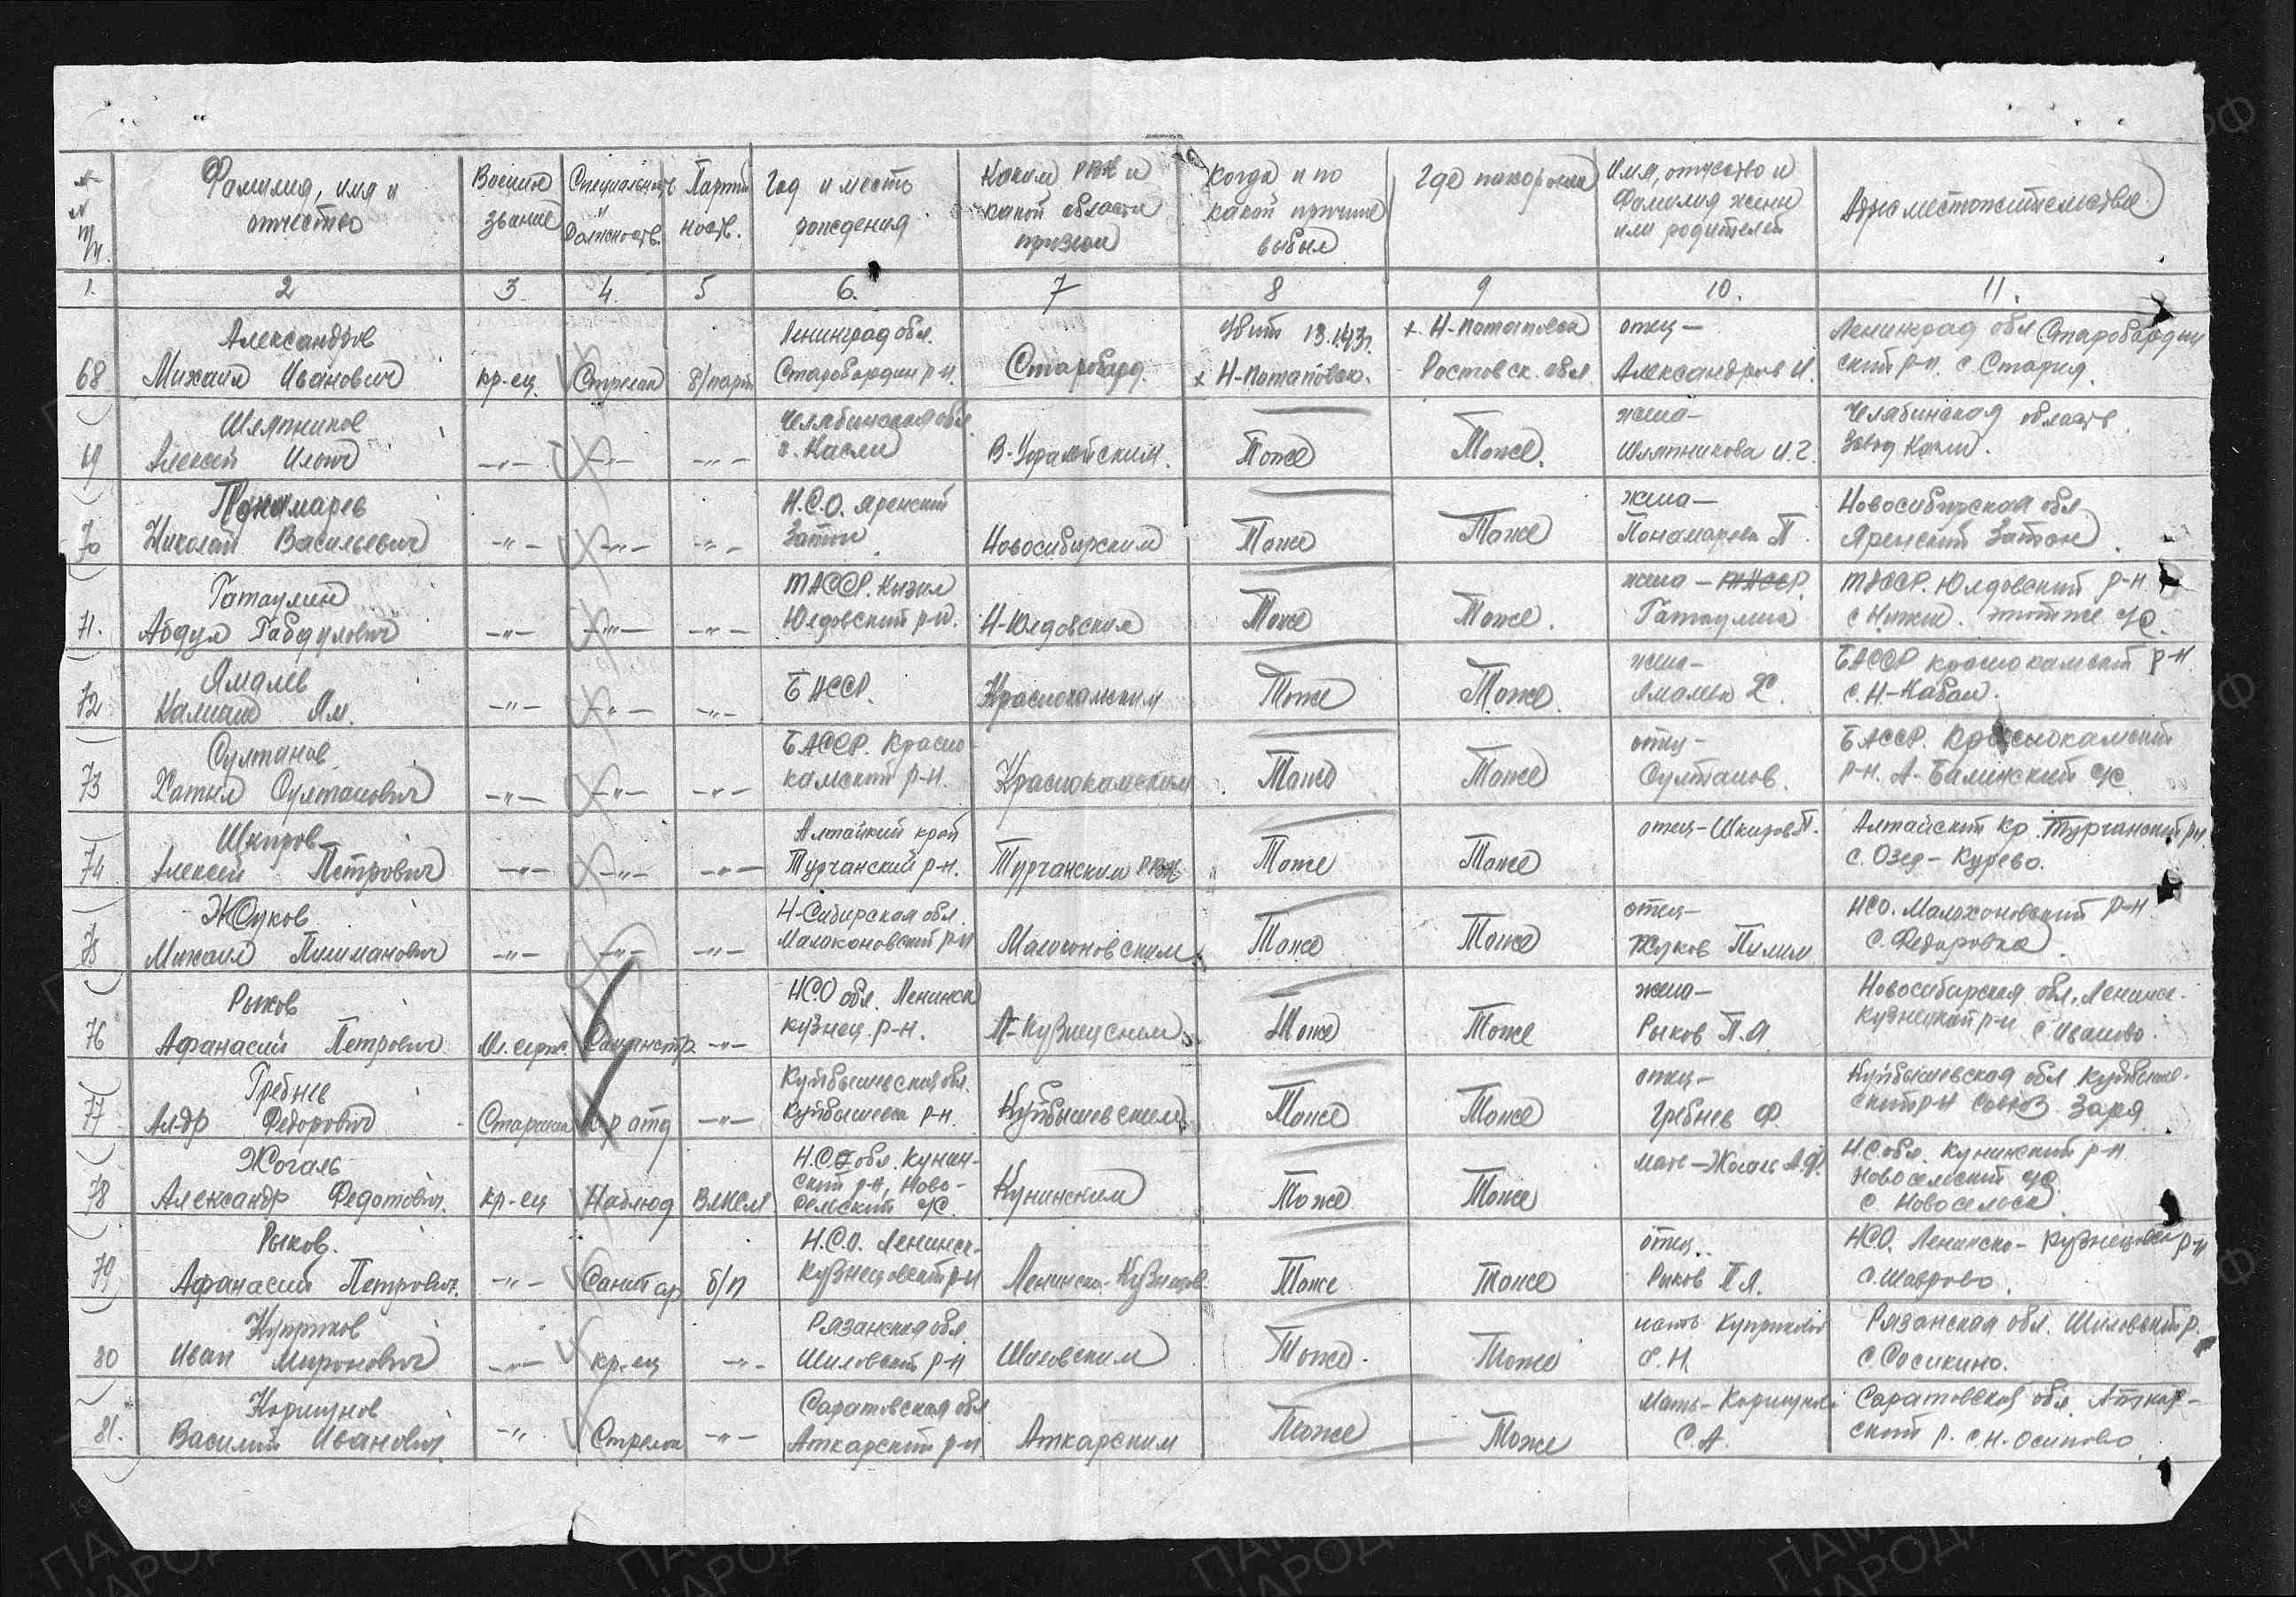 № п/п.
Фамилия, имя и отчество
Военное звание
Специальность и должность.
Партийность.
Год и место рождения
Каким РВК и какой области призван
Когда и по какой причине выбыл
Где похоронен
Имя, отчество и фамилия жены или родителей
Адрес местожительства
1. 2 3 4. 5 6. 7 8 9 10. 11.
Александров Ленинград обл. Убит 13.1.43г. х Н-Потаповка отец – Ленинград обл Старобардин
68 Михаил Иванович кр-ец Стрелок б/парт Старобардин р-н. Старобард. х Н-Потаповка. Ростовск. обл. Александров И. ский р-н. с. Стария.
Шляпников Челябинская обл. жена – Челябинская область
69 Алексей Ильич –"– –"– –"– г. Касли В-Уфалейским. Тоже Тоже. Шляпникова И.Г. завод Касли.
Пономарев Н.С.О. Яренский жена – Новосибирская обл.
70 Николай Васильевич –"– –"– –"– Затон Новосибирским Тоже Тоже Пономарева П. Яренский Затон
Гатаулин ТАССР. Кызыл жена – ТАССР. ТАССР. Юлдовский р-н
71. Абдул Габдулович –"– –"– –"– Юлдовский р-н. Н-Юлдовским Тоже Тоже. Гатаулина с Нижн. с/с.
Ямалев жена – БАССР Краснокамский р-н
72 Ям. –"– –"– –"– БАССР. Краснокамским Тоже Тоже. Х. с. Н-Кабан.
Султанов БАССР. Красно- отец – БАССР. Краснокамский
73 Султанович –"– –"– –"– камский р-н. Краснокамским Тоже Тоже Султанов. р-н. А-Балинский с/с.
Шкиров Алтайский край отец – Шкиров П. Алтайский кр. Турчанский р-н.
74 Алексей Петрович –"– –"– –"– Турчанский р-н. Турчанским РВК Тоже Тоже с. Озер-Курево.
Жуков Н-Сибирская обл. отец – НСО. Малохоновский р-н
75 Михаил Пилиманович –"– –"– –"– Малоконовский р-н Тоже Тоже Жуков Пилим с. Федоровка.
Рыков НСО обл. Ленинск жена – Новосибирская обл. Ленинск-
76 Афанасий Петрович Мл. серж. Санинстр. –"– кузнец. р-н. Л-Кузнецским Тоже Тоже Рыков П.Я. Кузнецкий р-н с Иваново.
Гребнев Куйбышевская обл. отец – Куйбышевская обл Куйбышев-
77 Ал-др Федорович Старшина –"– Куйбышевск р-н. Куйбышевским Тоже Тоже Гребнев Ф. ский р-н совхоз Заря
Жогаль Н.С.О обл. Кунин- мать – Жогаль А.Ф. Н.С.обл. Кунинский р-н
78 Александр Федотович. кр-ец Наблюд ВЛКСМ ский р-н, Ново- сельский с/с. Кунинским Тоже Тоже Новосельский с/с. с. Новоселово
Рыков. Н.С.О. Ленинск- отец. НСО. Ленинско-Кузнецовск р-н
79 Афанасий Петрович. –"– Санитар б/п Кузнецовский р-н Ленинско-Кузнецов. Тоже Тоже Рыков П Я. с. Шаврово.
Куприков Рязанская обл. мать Куприкова Рязанская обл. Шиловский р.
80 Иван Миронович –"– кр-ец –"– Шиловский р-н Шиловским Тоже. Тоже Ф.Н. с. Сосикино.
Коршунов Саратовская обл Мать – Коршунова Саратовская обл. Аткар-
81. Василий Иванович. –"– Стрелок –"– Аткарский р-н Аткарским Тоже Тоже С.А. ский р. с. Н-Осипово